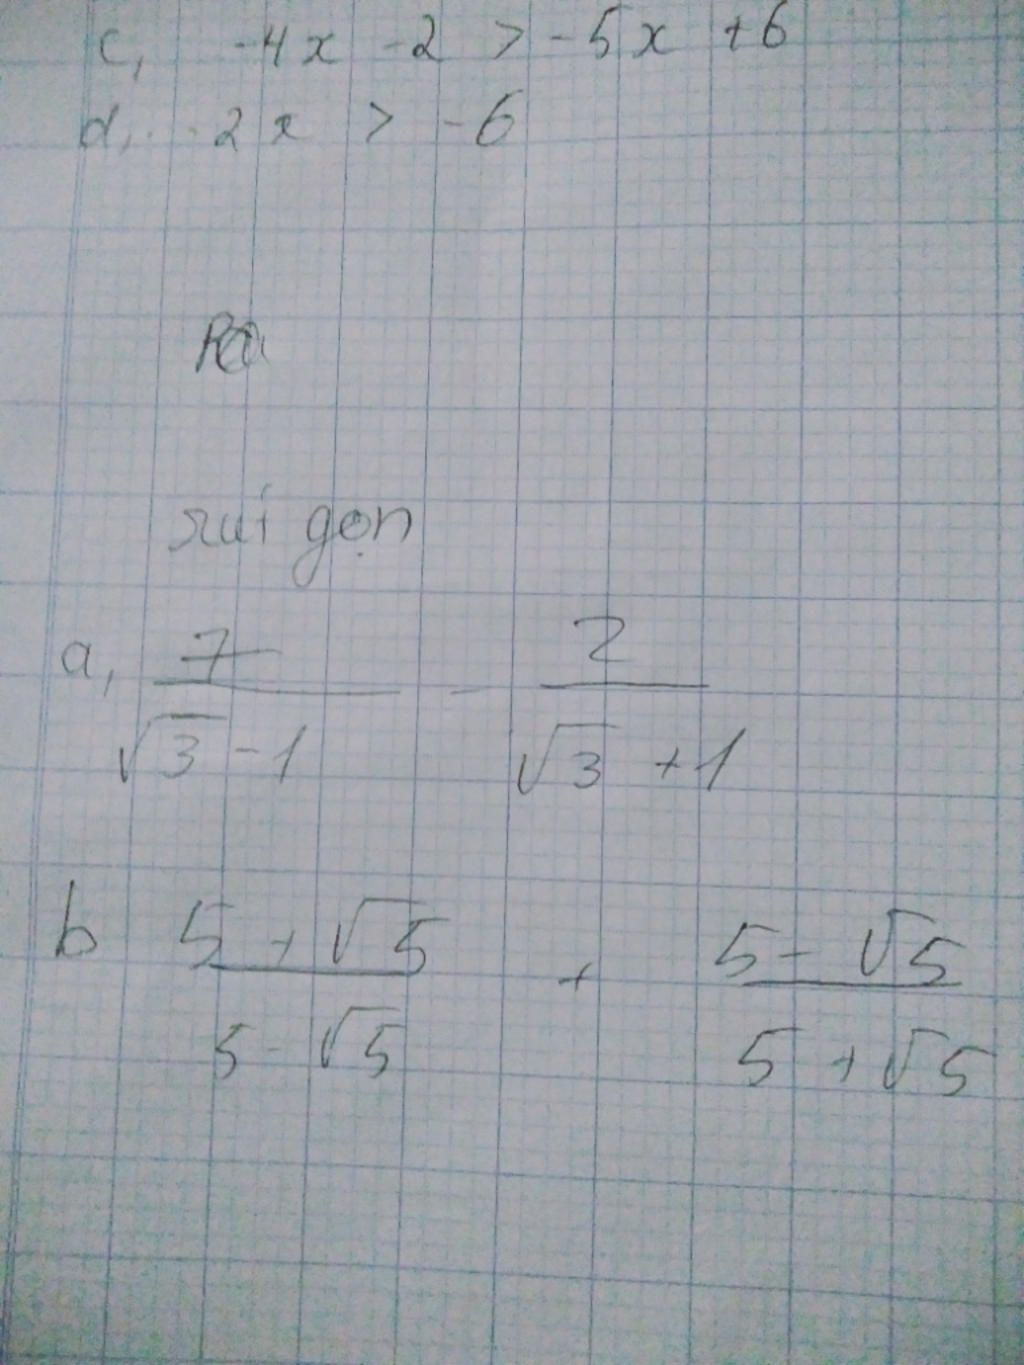 c, -4x - 2 > -5x + 6
d, 2x > -6
rut gọn
a, 7 / (√3 - 1) - 2 / (√3 + 1)
b (5 + √5) / (5 - √5) + (5 - √5) / (5 + √5)